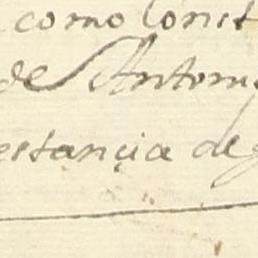 como Const
de Antonio
estançia de